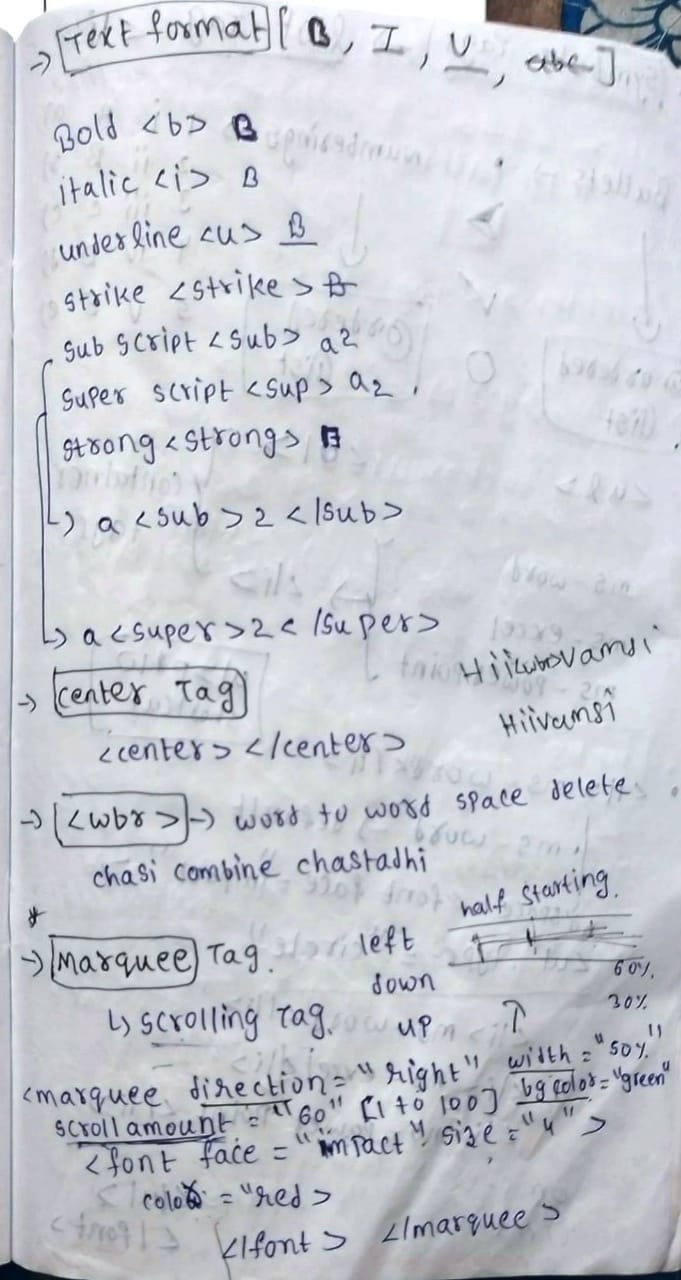 → Text format [ B, I, U, abc ]
Bold <b> B
italic <i> B
underline <u> B
strike <strike> B
Sub script <sub> a2
Super script <sup> a2.
strong <strong> B
↳ a <sub>2</sub>
↳ a<super>2</super>
→ Center Tag
<center></center>
Hii<wbr>vamsi
Hiivamsi
→ <wbr> → word to word space delete
chasi combine chastadhi
*
→ Marquee Tag.
left
half starting.
down
60%
↳ scrolling Tag.
up
30%
<marquee direction="right" width="50%"
scroll amount = "60" [1 to 100] bg color="green"
<font face = "impact" size = "4" >
color = "red >
</font> </marquee>